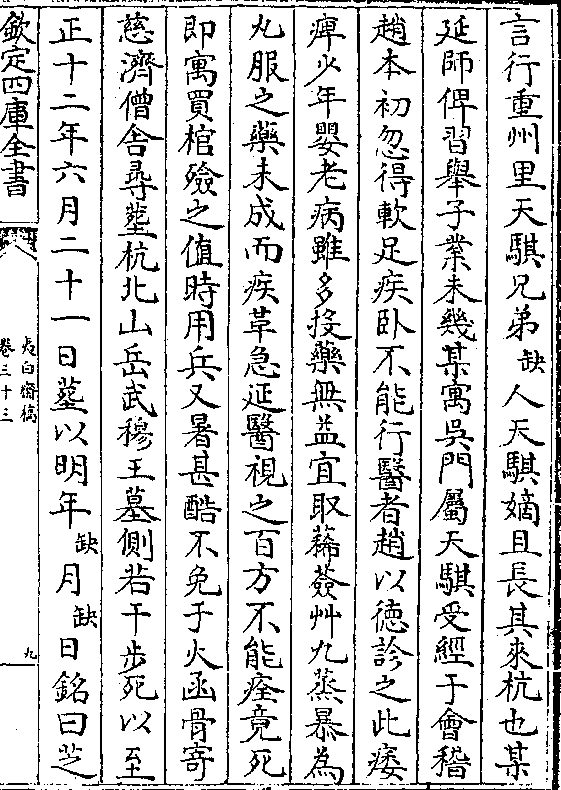 言行重州里天騏兄弟缺人天騏嫡且長其來杭也某
延師俾習舉子業未幾某寓吳門屬天騏受經于會稽
趙本初忽得軟足疾卧不能行醫者趙以徳診之此痿
痺少年嬰老病雖多投藥無益宜取豨薟艸九蒸暴為
丸服之藥未成而疾革急延醫視之百方不能痊竟死
即寓買棺殮之值時用兵又暑甚酷不免于火函骨寄
慈濟僧舍尋塟杭北山岳武穆王墓側若干步死以至
正十二年六月二十一日塟以明年缺月缺日銘曰芝
欽定四庫全書
夷白齋稿
卷三十三
九